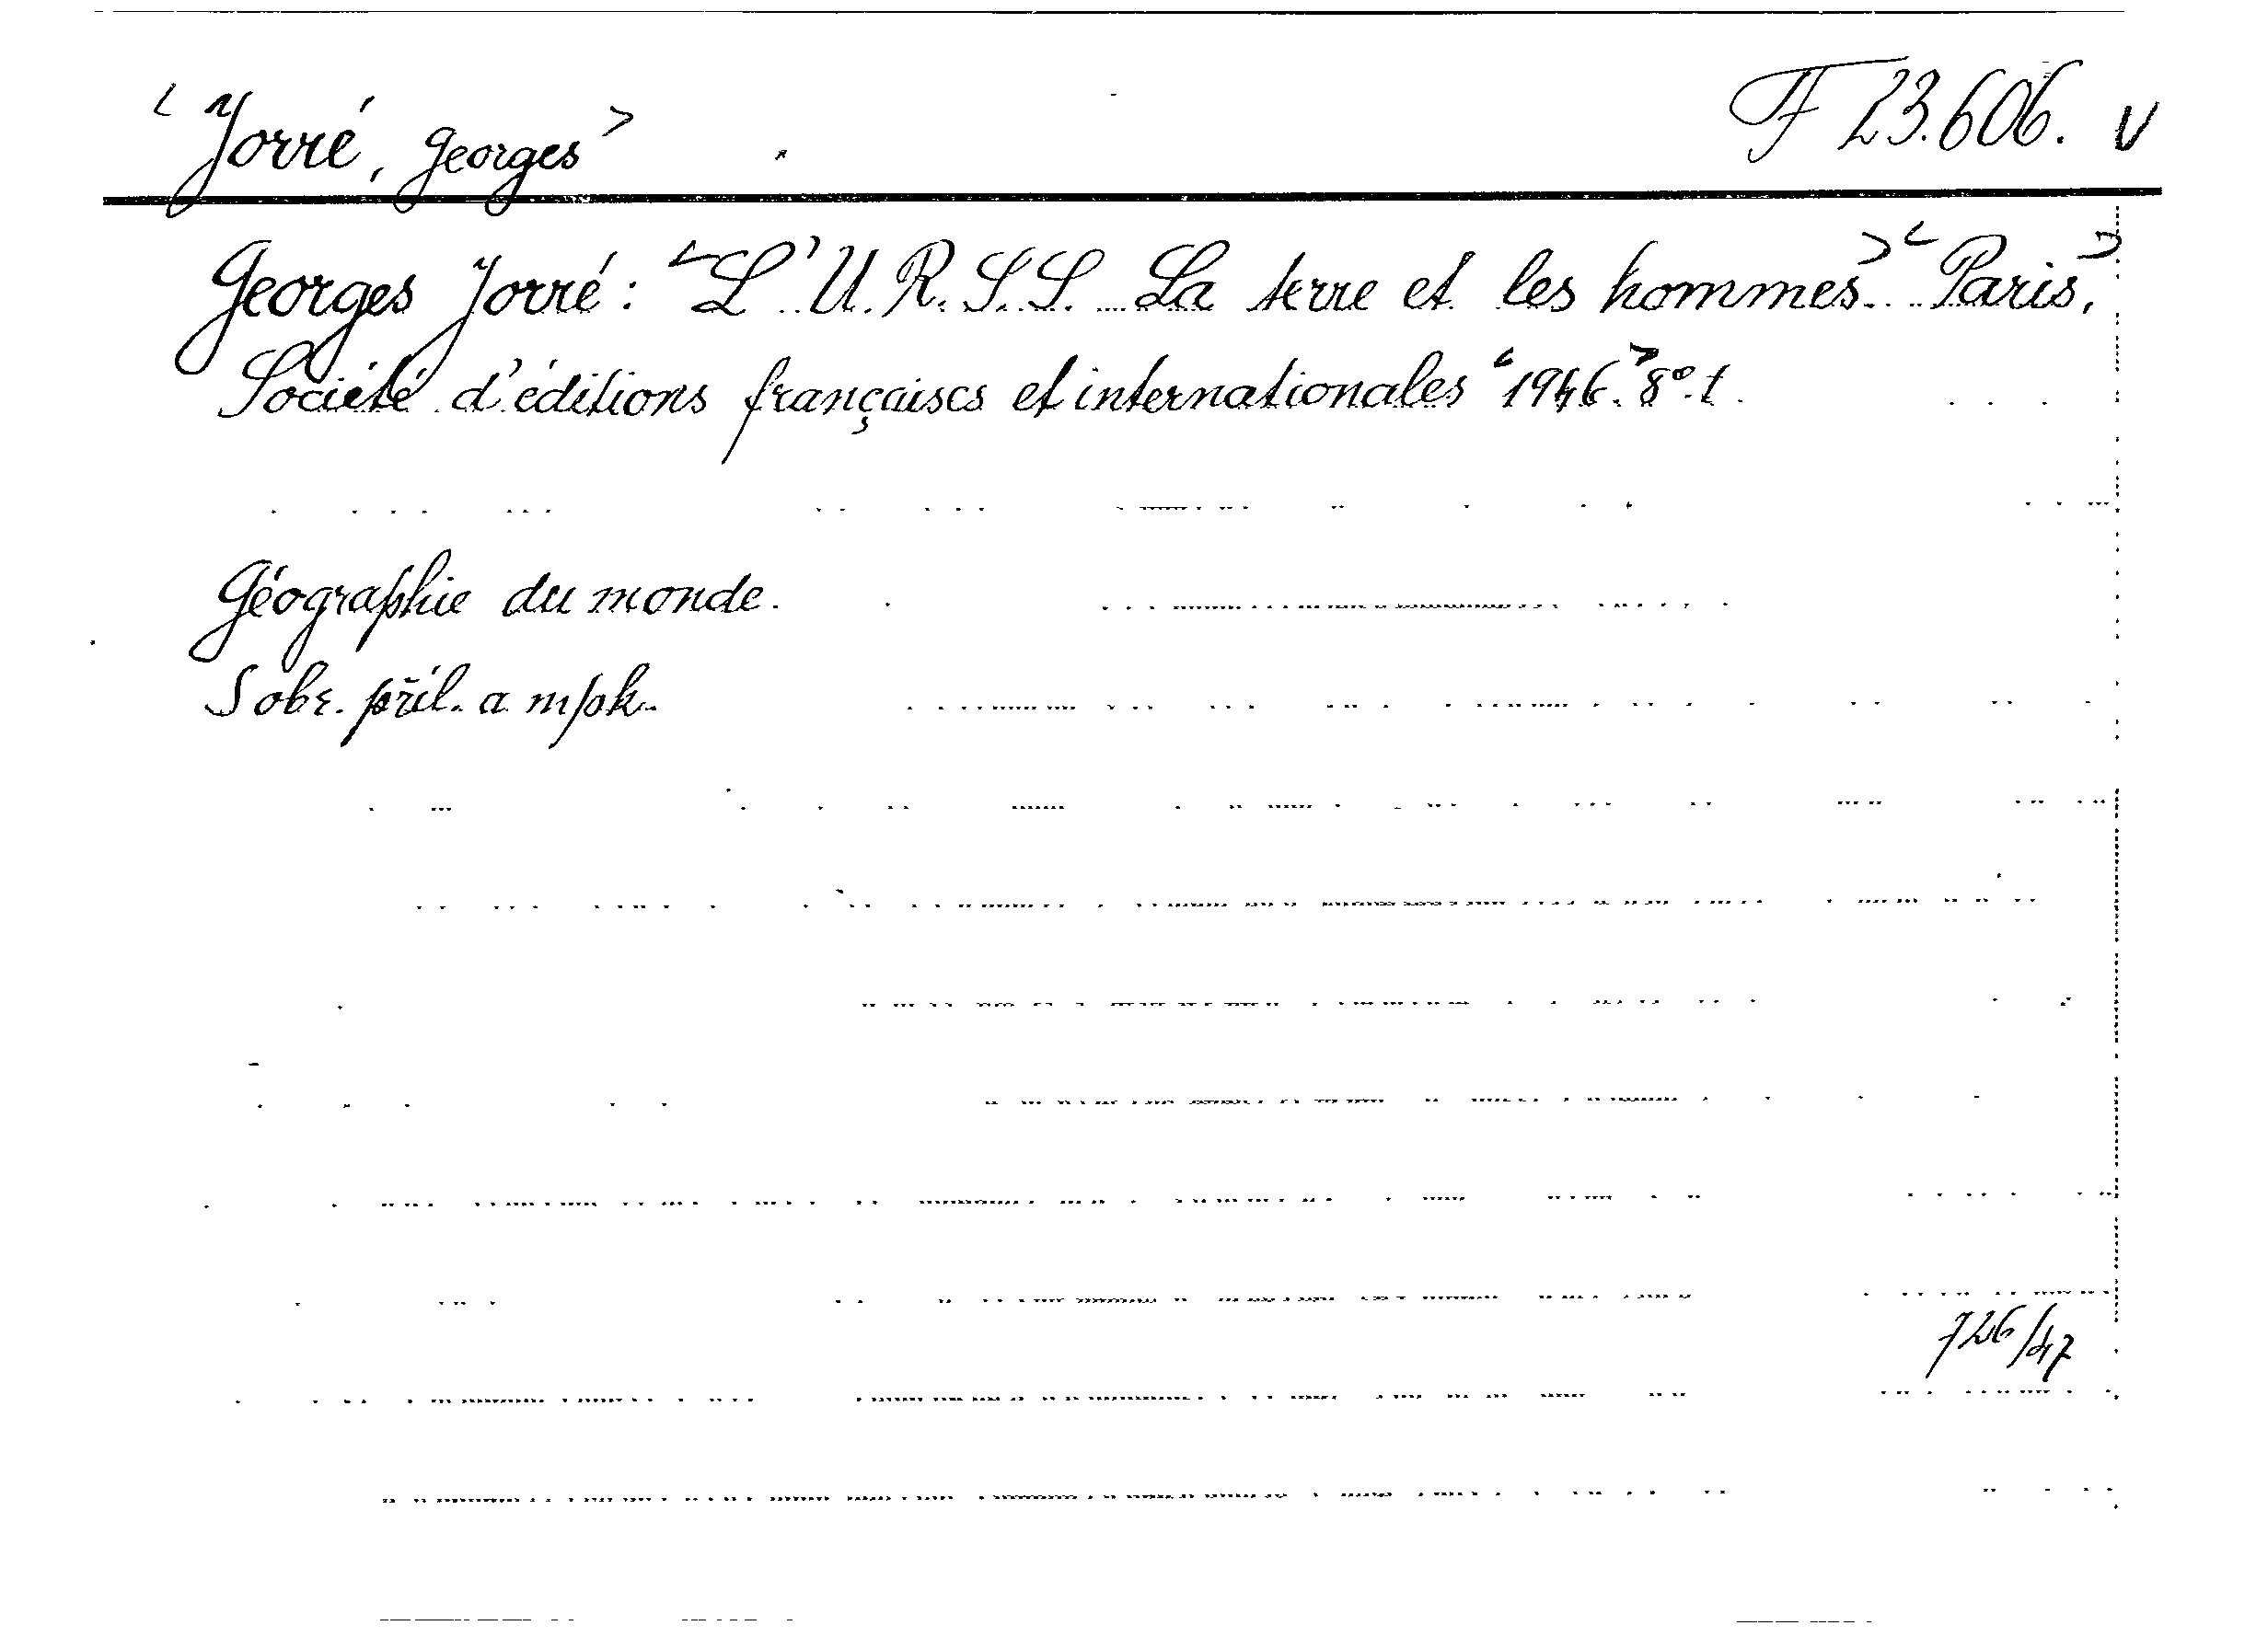 <Jorré, Georges> F 23.606. V
Georges Jorré: <L'U.R.S.S. La terre et les hommes>. <Paris,>
Société d'éditions françaises et internationales <1946.> 8°. t.
Géographie du monde.
S obr. příl. a mpk.
726/47